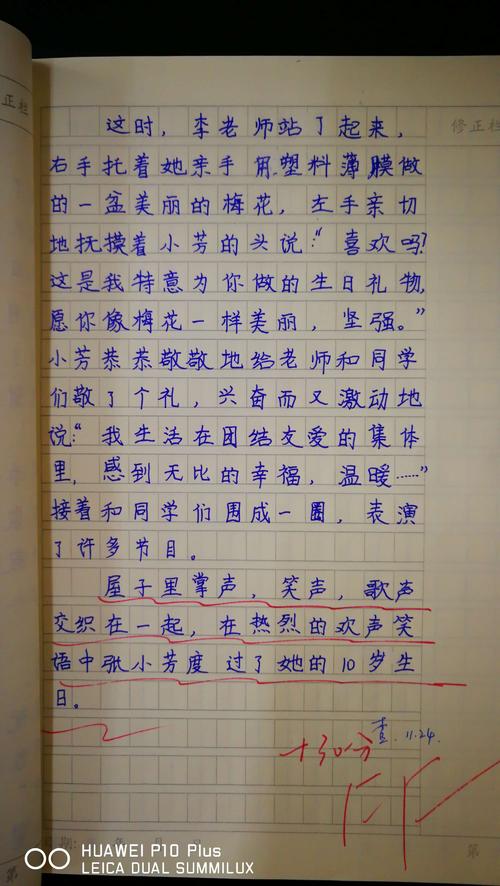 正栏
修正栏
这时，李老师站了起来，
右手托着她亲手用塑料薄膜做
的一盆美丽的梅花，左手亲切
地抚摸着小芳的头说：“喜欢吗？
这是我特意为你做的生日礼物，
愿你像梅花一样美丽，坚强。”
小芳恭恭敬敬地给老师和同学
们敬了个礼，兴奋而又激动地
说：“我生活在团结友爱的集体
里，感到无比的幸福，温暖……”
接着和同学们围成一圈，表演
了许多节目。
屋子里掌声，笑声，歌声
交织在一起，在热烈的欢声笑
语中张小芳度过了她的10岁生
日。
查.11.24.
+30分
第
第
HUAWEI P10 Plus
LEICA DUAL SUMMILUX